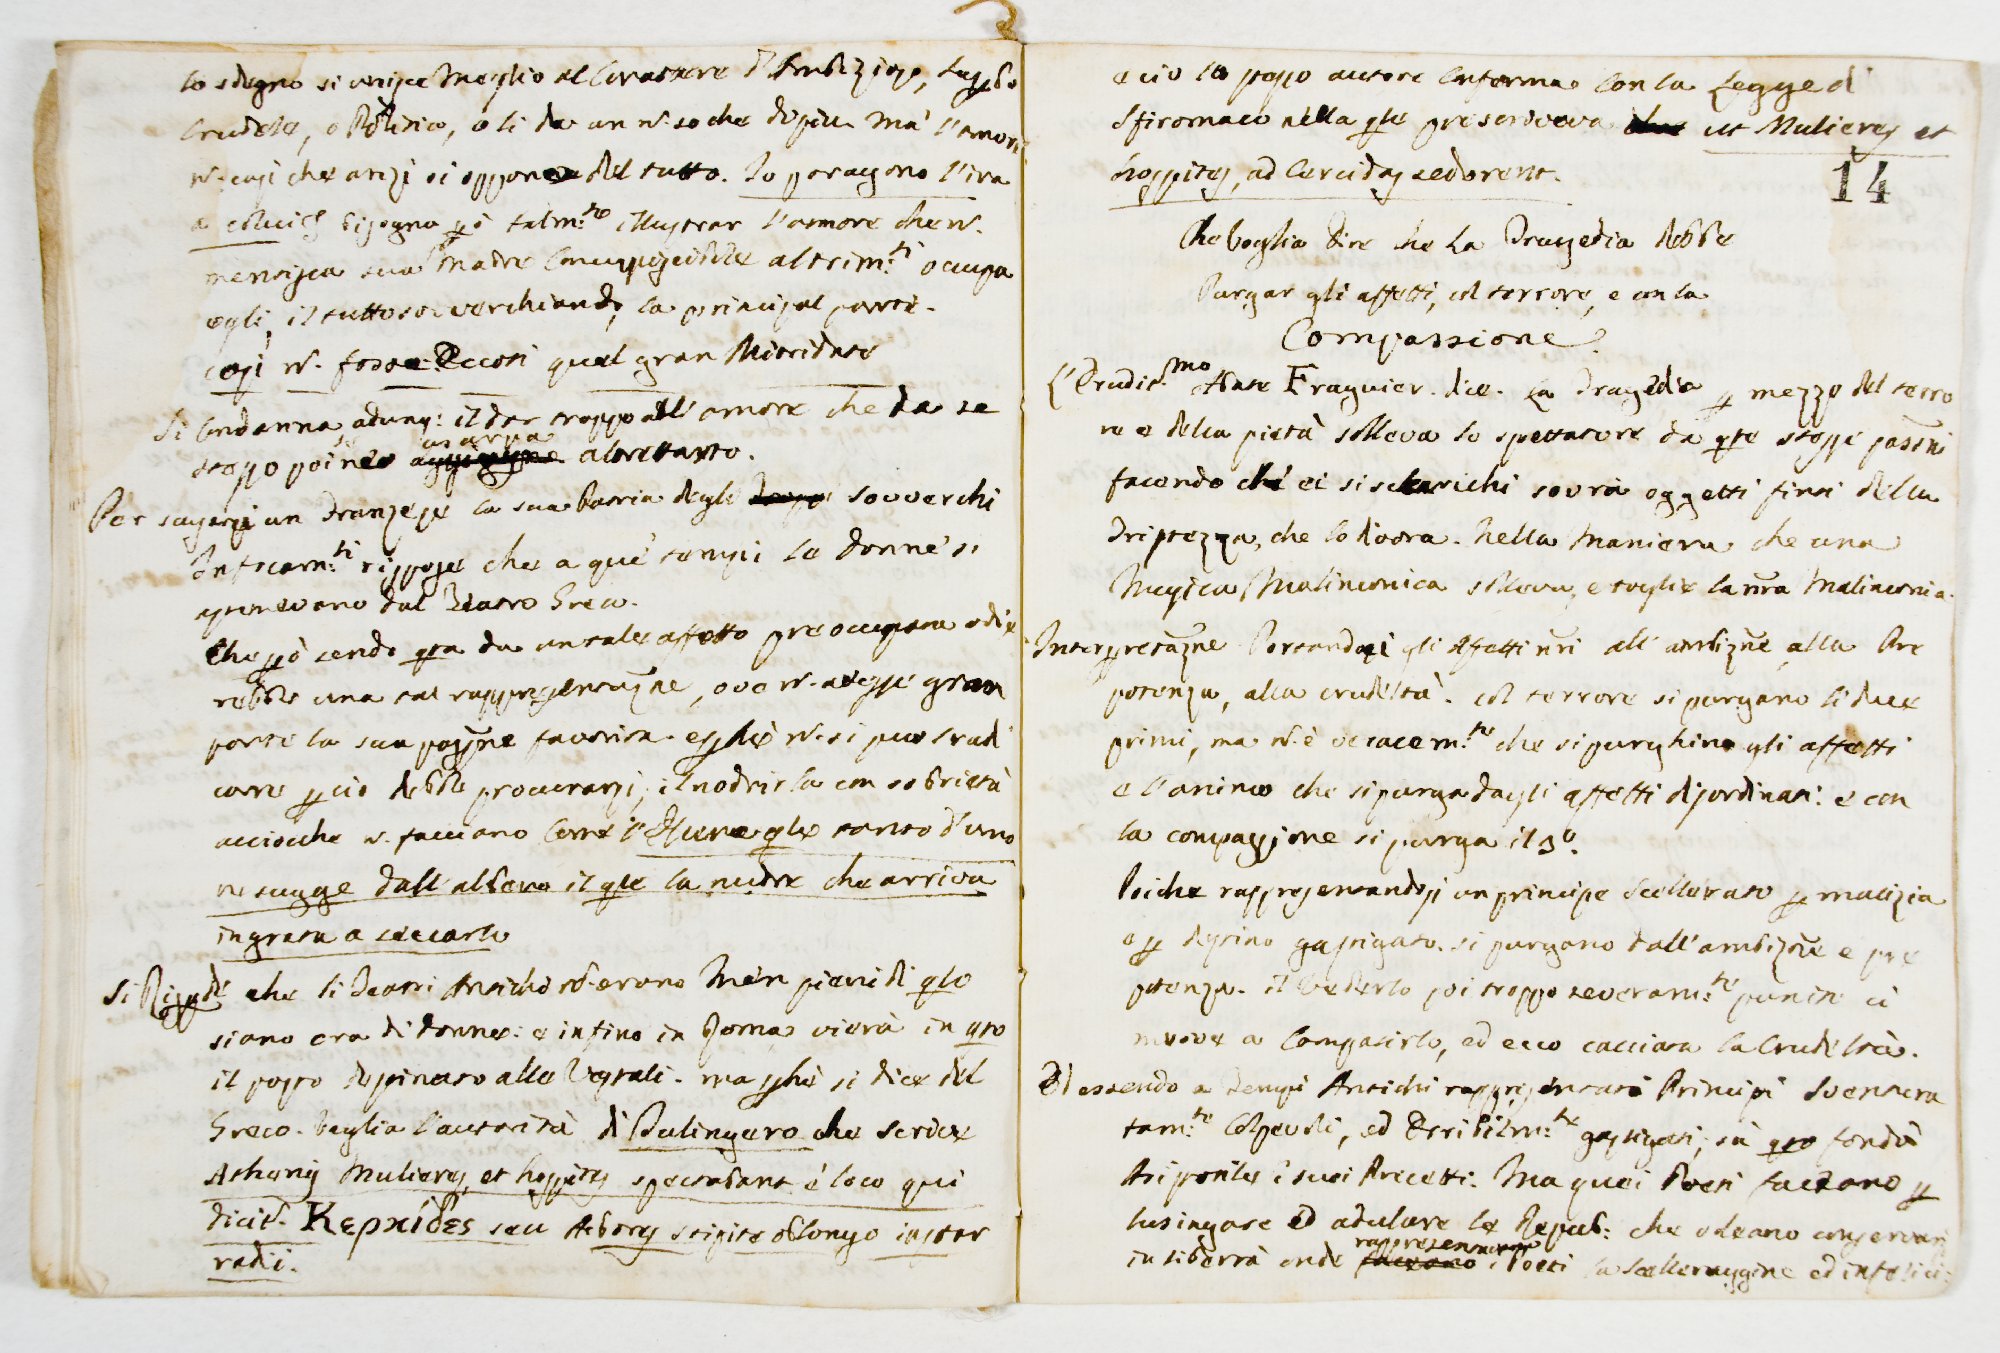 lo sdegno si unisce meglio al Carattere d'Ambizioso, superbo
Crudele, o Politico, e li da un n. so che di più. Ma' l'amore
n. così che anzi si oppone del tutto. Io paragono l'ira
a bisogna però talm.te illustrar l'amore che n.
sua madre concupiscibile altrim.ti occupa
egli, il tutto soverchiando, la principal parte.
così n. fosse Eccoti quel gran Mitridate
Si Condanna adunq: il dar troppo all'amore che da se
usurpa
stesso poi se ne altrettanto.
Per un Franzese la sua Patria degli sovverchi
Infocam.ti rispose che a que' tempi le donne si
dal Teatro Greco.
Che però sendo qsta da un tale affetto preoccupata odie
rebbe una tal rappresentazne, ove n. avesse gran
parte la sua passne favorita. e perchè n. si può sradi
care p ciò debbe procurarsi, il nodrirla con sobrietà
acciocche n. facciano come l' tanto d'umo
re sugge dall'albero il qle la nudre che arriva
ingrata a seccarlo
Si Rispde che li Teatri Antichi n. erano men pieni di qlo
siano ora di donne: e infino in Roma viera in qto
il posto destinato alle Vestali. ma perchè si dice del
Greco. Vaglia l'autorità di Bulingero che scrive
Athenis Mulieres, et hospites spectabant è loco qui
dicit. Κερκίδες seu Arbores stipite oblongo instar
radii.
e ciò lo stesso autore conferma con la Legge di
Sfiromaco nella qle prescriveva ut Mulieres et
hospites, ad Cercidas sederent.
14
Che voglia dire che la Tragedia debbe
Purgar gli affetti, col terrore, e con la
Compassione.
L'Erudit.mo Abate Fraguier. dice. La Tragedia p mezzo del terro
re e della pietà solleva lo spettatore da qste stesse passni
facendo chè ei si scarichi sovra oggetti finti della
Tristezza, che lo divora. Nella maniera che una
Musica Malinconica solleva, e toglie la nra Malinconia.
Interpretazne Portandosi gli Affetti nri all'ambizne, alla Pre
potenza, alla crudeltà. col terrore si purgano li due
primi, ma n. è veracem.te che si purghino gli affetti
e l'animo che si purga dagli affetti disordinati: e con
la compassione si purga il 3º.
Poiche rappresentandosi un principe scellerato p malizia
e p destino gastigato. si purgano dall'ambizne e pre
potenza. il vederlo poi troppo severam.te punito ci
muove a compatirlo, ed ecco cacciata la Crudeltà.
Ed essendo a tempi Antichi rappresentati Principi sventura
tam.te Colpevoli, ed terribilm.te gastigati, sù qto fondò
Aristotile i suoi Precetti. Ma quei Poeti faceano p
lusingare ed adulare le Repub: che voleano conservarsi
rappresentavano
in libertà onde faceano i Poeti la scelleraggine ed infelici: